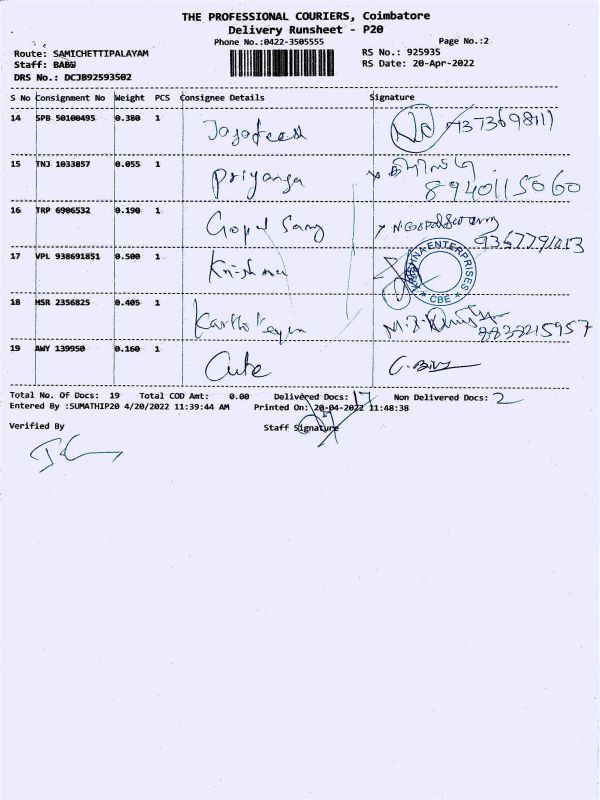 THE PROFESSIONAL COURIERS, Coimbatore
Delivery Runsheet - P20
Phone No.:0422-3505555
Page No.:2
Route: SAMICHETTIPALAYAM
RS No.: 925935
Staff: BABU
RS Date: 20-Apr-2022
DRS No.: DCJB92593502
S No Consignment No Weight PCS Consignee Details Signature
14 SPB 50100495 0.380 1
15 TNJ 1033857 0.055 1 Priyanga 8940115060
16 TRP 6906532 0.190 1 Gopal Samy
17 VPL 938691851 0.500 1 Krishna KRISHNA ENTERPRISES * CBE *
18 HSR 2356825 0.405 1 Karthikeyan
19 AWY 139950 0.160 1 Cute
Total No. Of Docs: 19 Total COD Amt: 0.00 Delivered Docs: 17 Non Delivered Docs: 2
Entered By :SUMATHIP20 4/20/2022 11:39:44 AM Printed On: 20-04-2022 11:48:38
Verified By Staff Signature